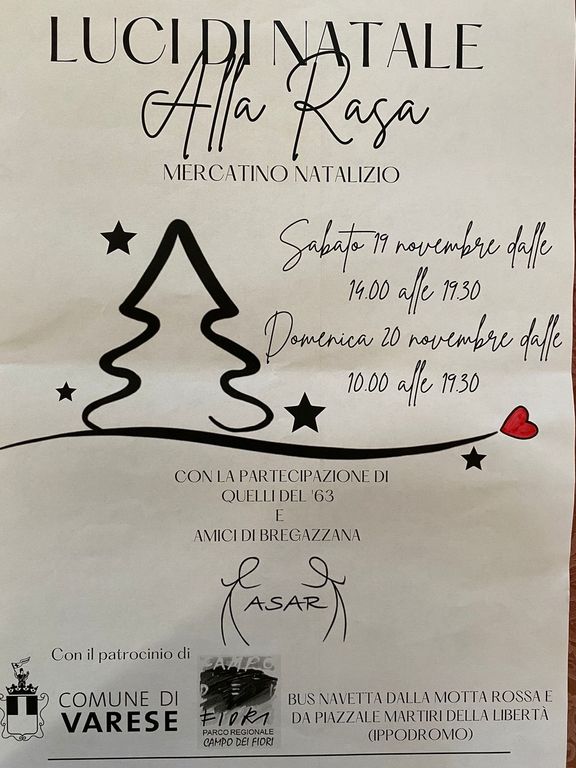 LUCI DI NATALE
Alla Rasa
MERCATINO NATALIZIO
Sabato 19 novembre dalle
14.00 alle 19.30
Domenica 20 novembre dalle
10.00 alle 19.30
CON LA PARTECIPAZIONE DI
QUELLI DEL '63
E
AMICI DI BREGAZZANA
ASAR
Con il patrocinio di
COMUNE DI
VARESE
CAMPO
FIORI
PARCO REGIONALE
CAMPO DEI FIORI
BUS NAVETTA DALLA MOTTA ROSSA E
DA PIAZZALE MARTIRI DELLA LIBERTÀ
(IPPODROMO)